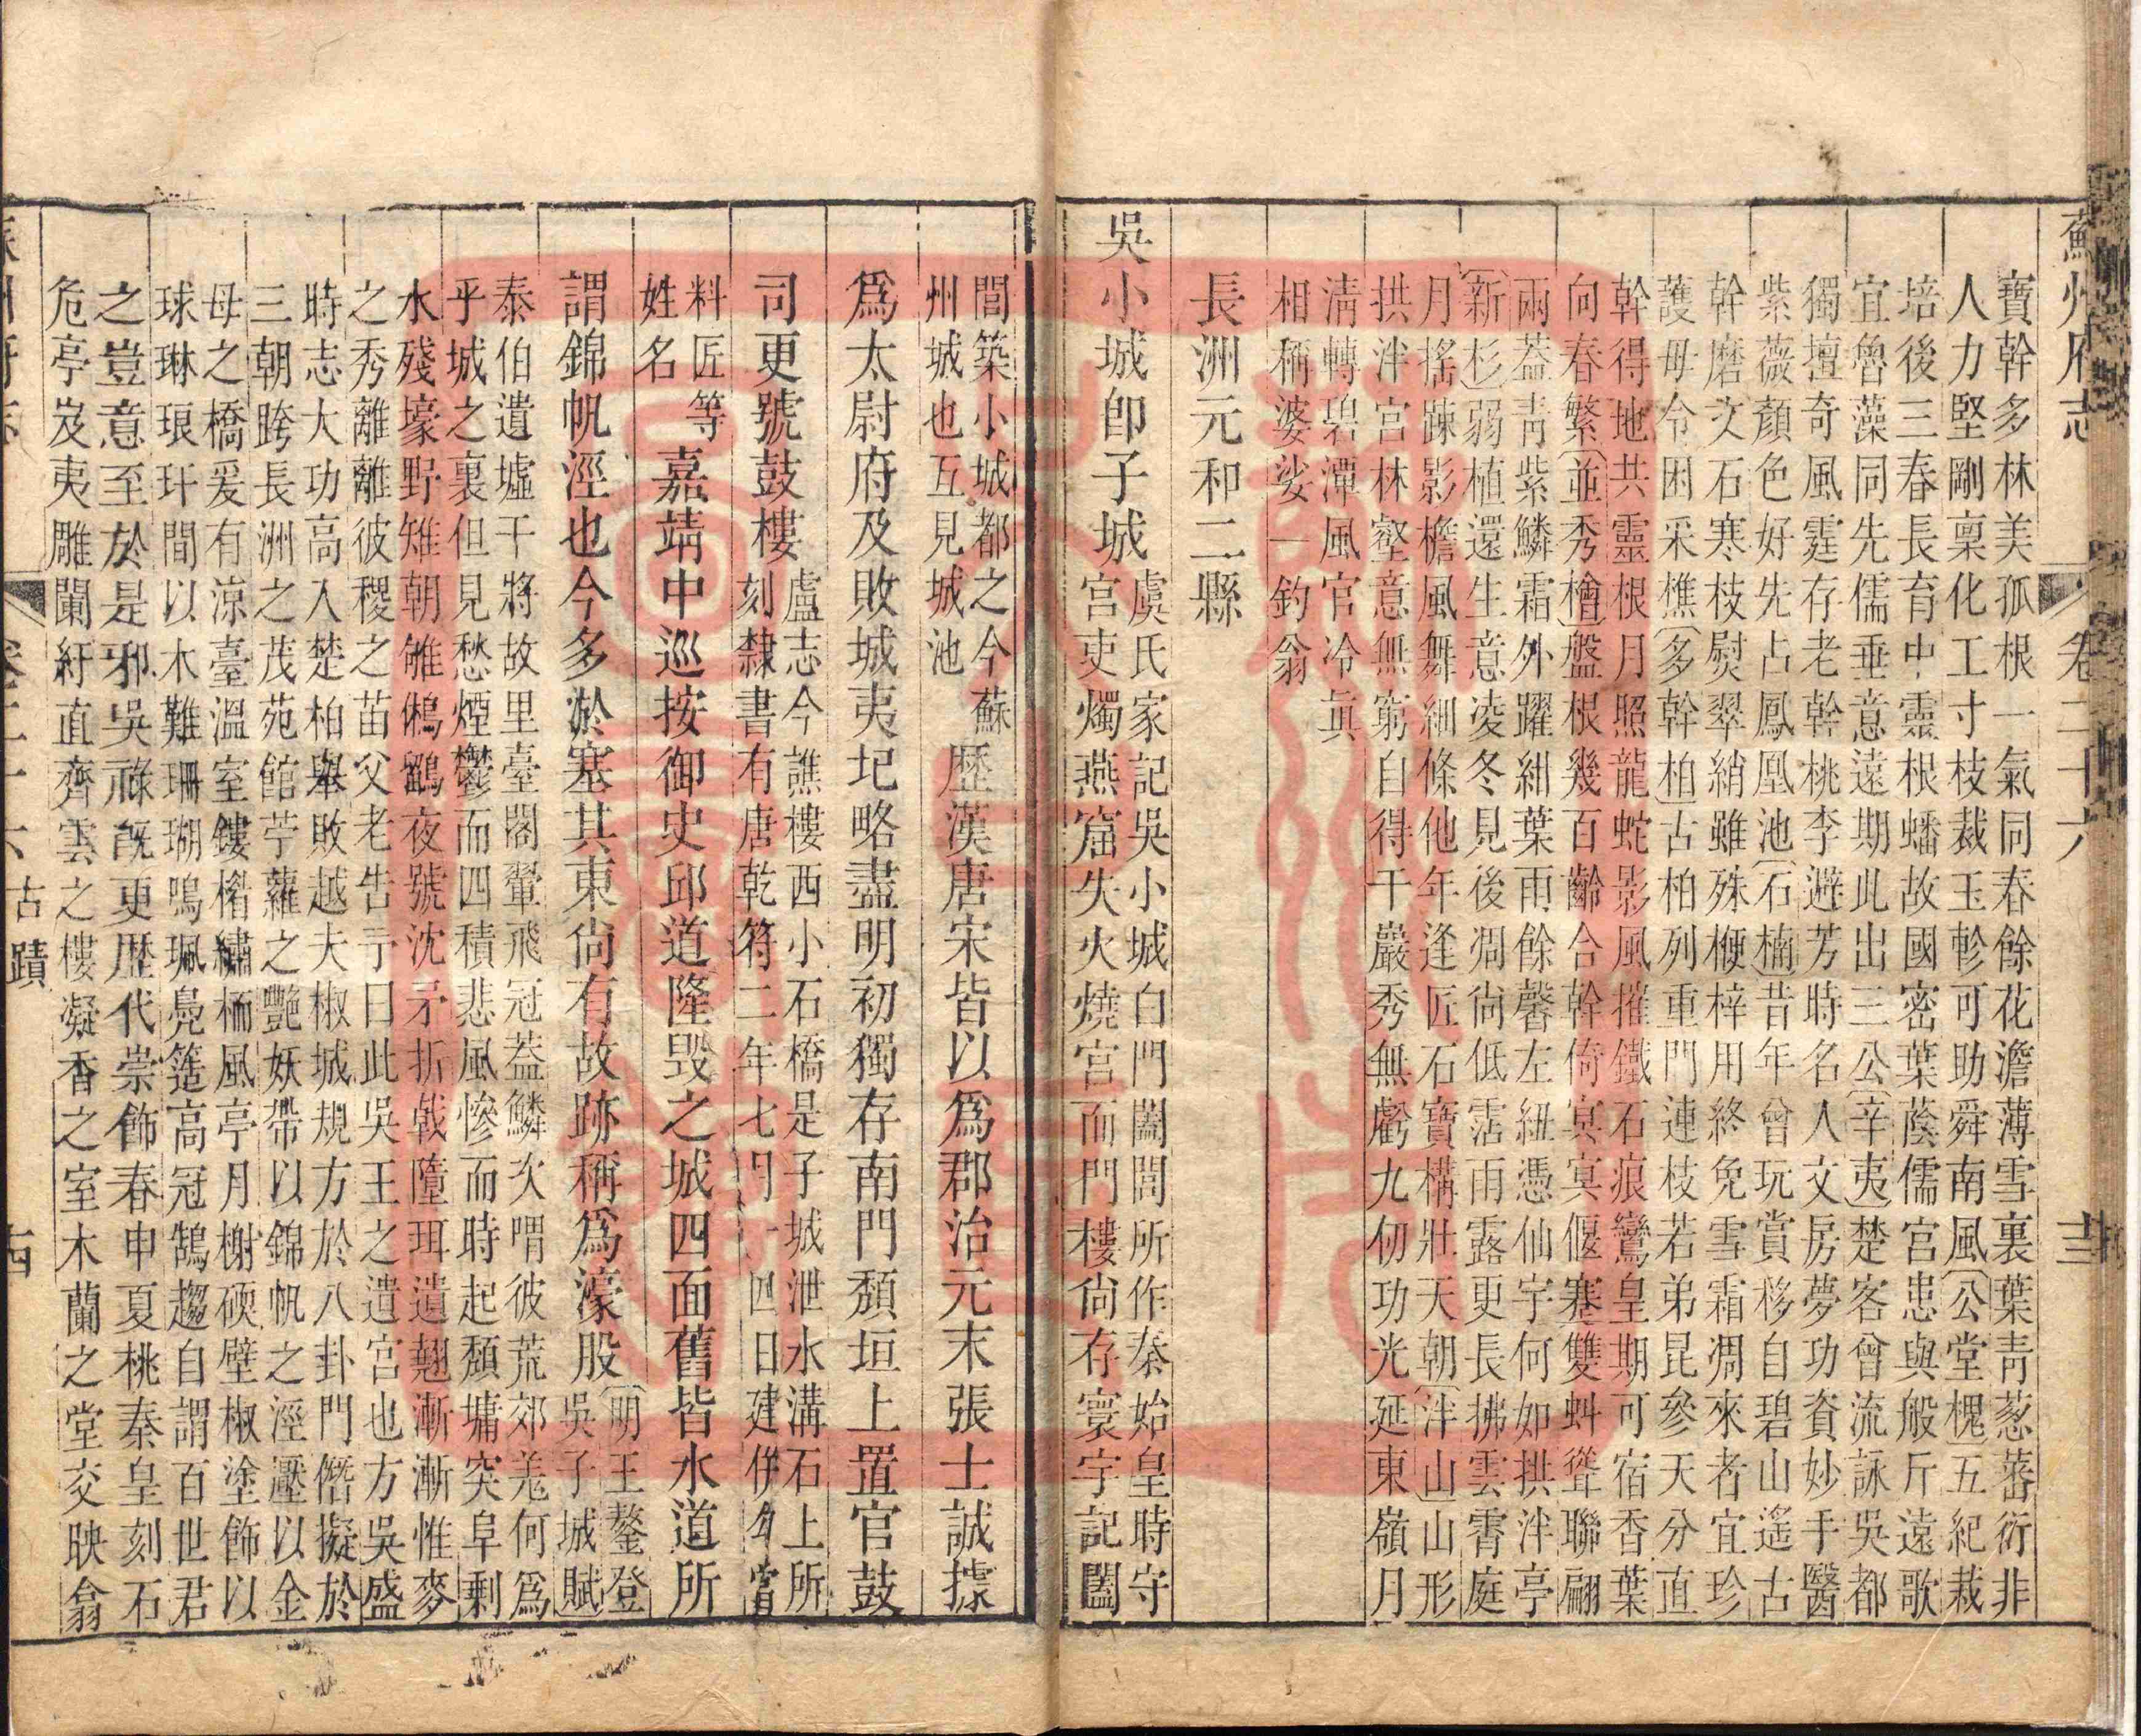 蘇州府志
卷二十六
寶幹多林美孤根一氣同春餘花澹薄雪裏葉靑葱蕃衍非
人力堅剛稟化工寸枝裁玉軫可助舜南風〔公堂槐〕五紀裁
培後三春長育中靈根蟠故國密葉蔭儒宮忠與般斤遠歌
宜魯藻同先儒垂意遠期此出三公〔辛夷〕楚客曾流詠吳都
獨壇奇風霆存老幹桃李避芳時名人文房夢功資妙手醫
紫薇顏色好先占鳳凰池〔石楠〕昔年曾玩賞移自碧山遙古
幹磨文石寒枝熨翠綃雖殊楩梓用終免雪霜凋來者宜珍
護毋令困采樵〔多幹柏〕古柏列重門連枝若弟昆參天分直
幹得地共靈根月照龍蛇影風摧鐵石痕鸞皇期可宿香葉
向春繁〔並秀檜〕盤根幾百齡合幹倚冥冥偃蹇雙虯聳聯翩
兩蓋靑紫鱗霜外躍紺葉雨餘馨左紐憑仙宇何如拱泮亭
〔新杉〕弱植還生意凌冬見後凋尙低霑雨露更長拂雲霄庭
月搖踈影檐風舞細條他年逢匠石寶構壯天朝〔泮山〕山形
拱泮宮林壑意無窮自得千巖秀無虧九仞功光延東嶺月
淸轉碧潭風官冷眞
相稱婆娑一釣翁
長洲元和二縣
吳小城卽子城
虞氏家記吳小城白門闔閭所作秦始皇時守
宮吏燭燕窟失火燒宮而門樓尙存寰宇記闔
閭築小城都之今蘇
州城也互見城池
歷漢唐宋皆以爲郡治元末張士誠據
爲太尉府及敗城夷圮略盡明初獨存南門頹垣上置官鼓
司更號鼓樓
盧志今譙樓西小石橋是子城泄水溝石上所
刻隸書有唐乾符二年七月十四日建倂勾當
料匠等
姓名
嘉靖中巡按御史邱道隆毁之城四面舊皆水道所
謂錦帆涇也今多淤塞其東尙有故跡稱爲濠股
〔明王鏊登
吳子城賦〕
泰伯遺墟干將故里臺閣翬飛冠蓋鱗次喟彼荒郊羌何爲
乎城之裏但見愁煙鬱而四積悲風慘而時起頹墉突阜剩
水殘壕野雉朝雊鵂鶹夜號沈矛折戟墮珥遺翹漸漸惟麥
之秀離離彼稷之苗父老告予曰此吳王之遺宮也方吳盛
時志大功高入楚柏舉敗越夫椒城規方於八卦門僭擬於
三朝跨長洲之茂苑館苧蘿之艷妖帶以錦帆之涇壓以金
母之橋爰有涼臺溫室鏤楷繡栭風亭月榭碝壁椒塗飾以
球琳琅玕間以木難珊瑚鳴珮鳧舃高冠鵠趨自謂百世君
之豈意至於是邪吳祿旣更歷代崇飾春申夏桃秦皇刻石
危亭岌夷雕闌紆直齊雲之樓凝香之室木蘭之堂交映翕
古蹟